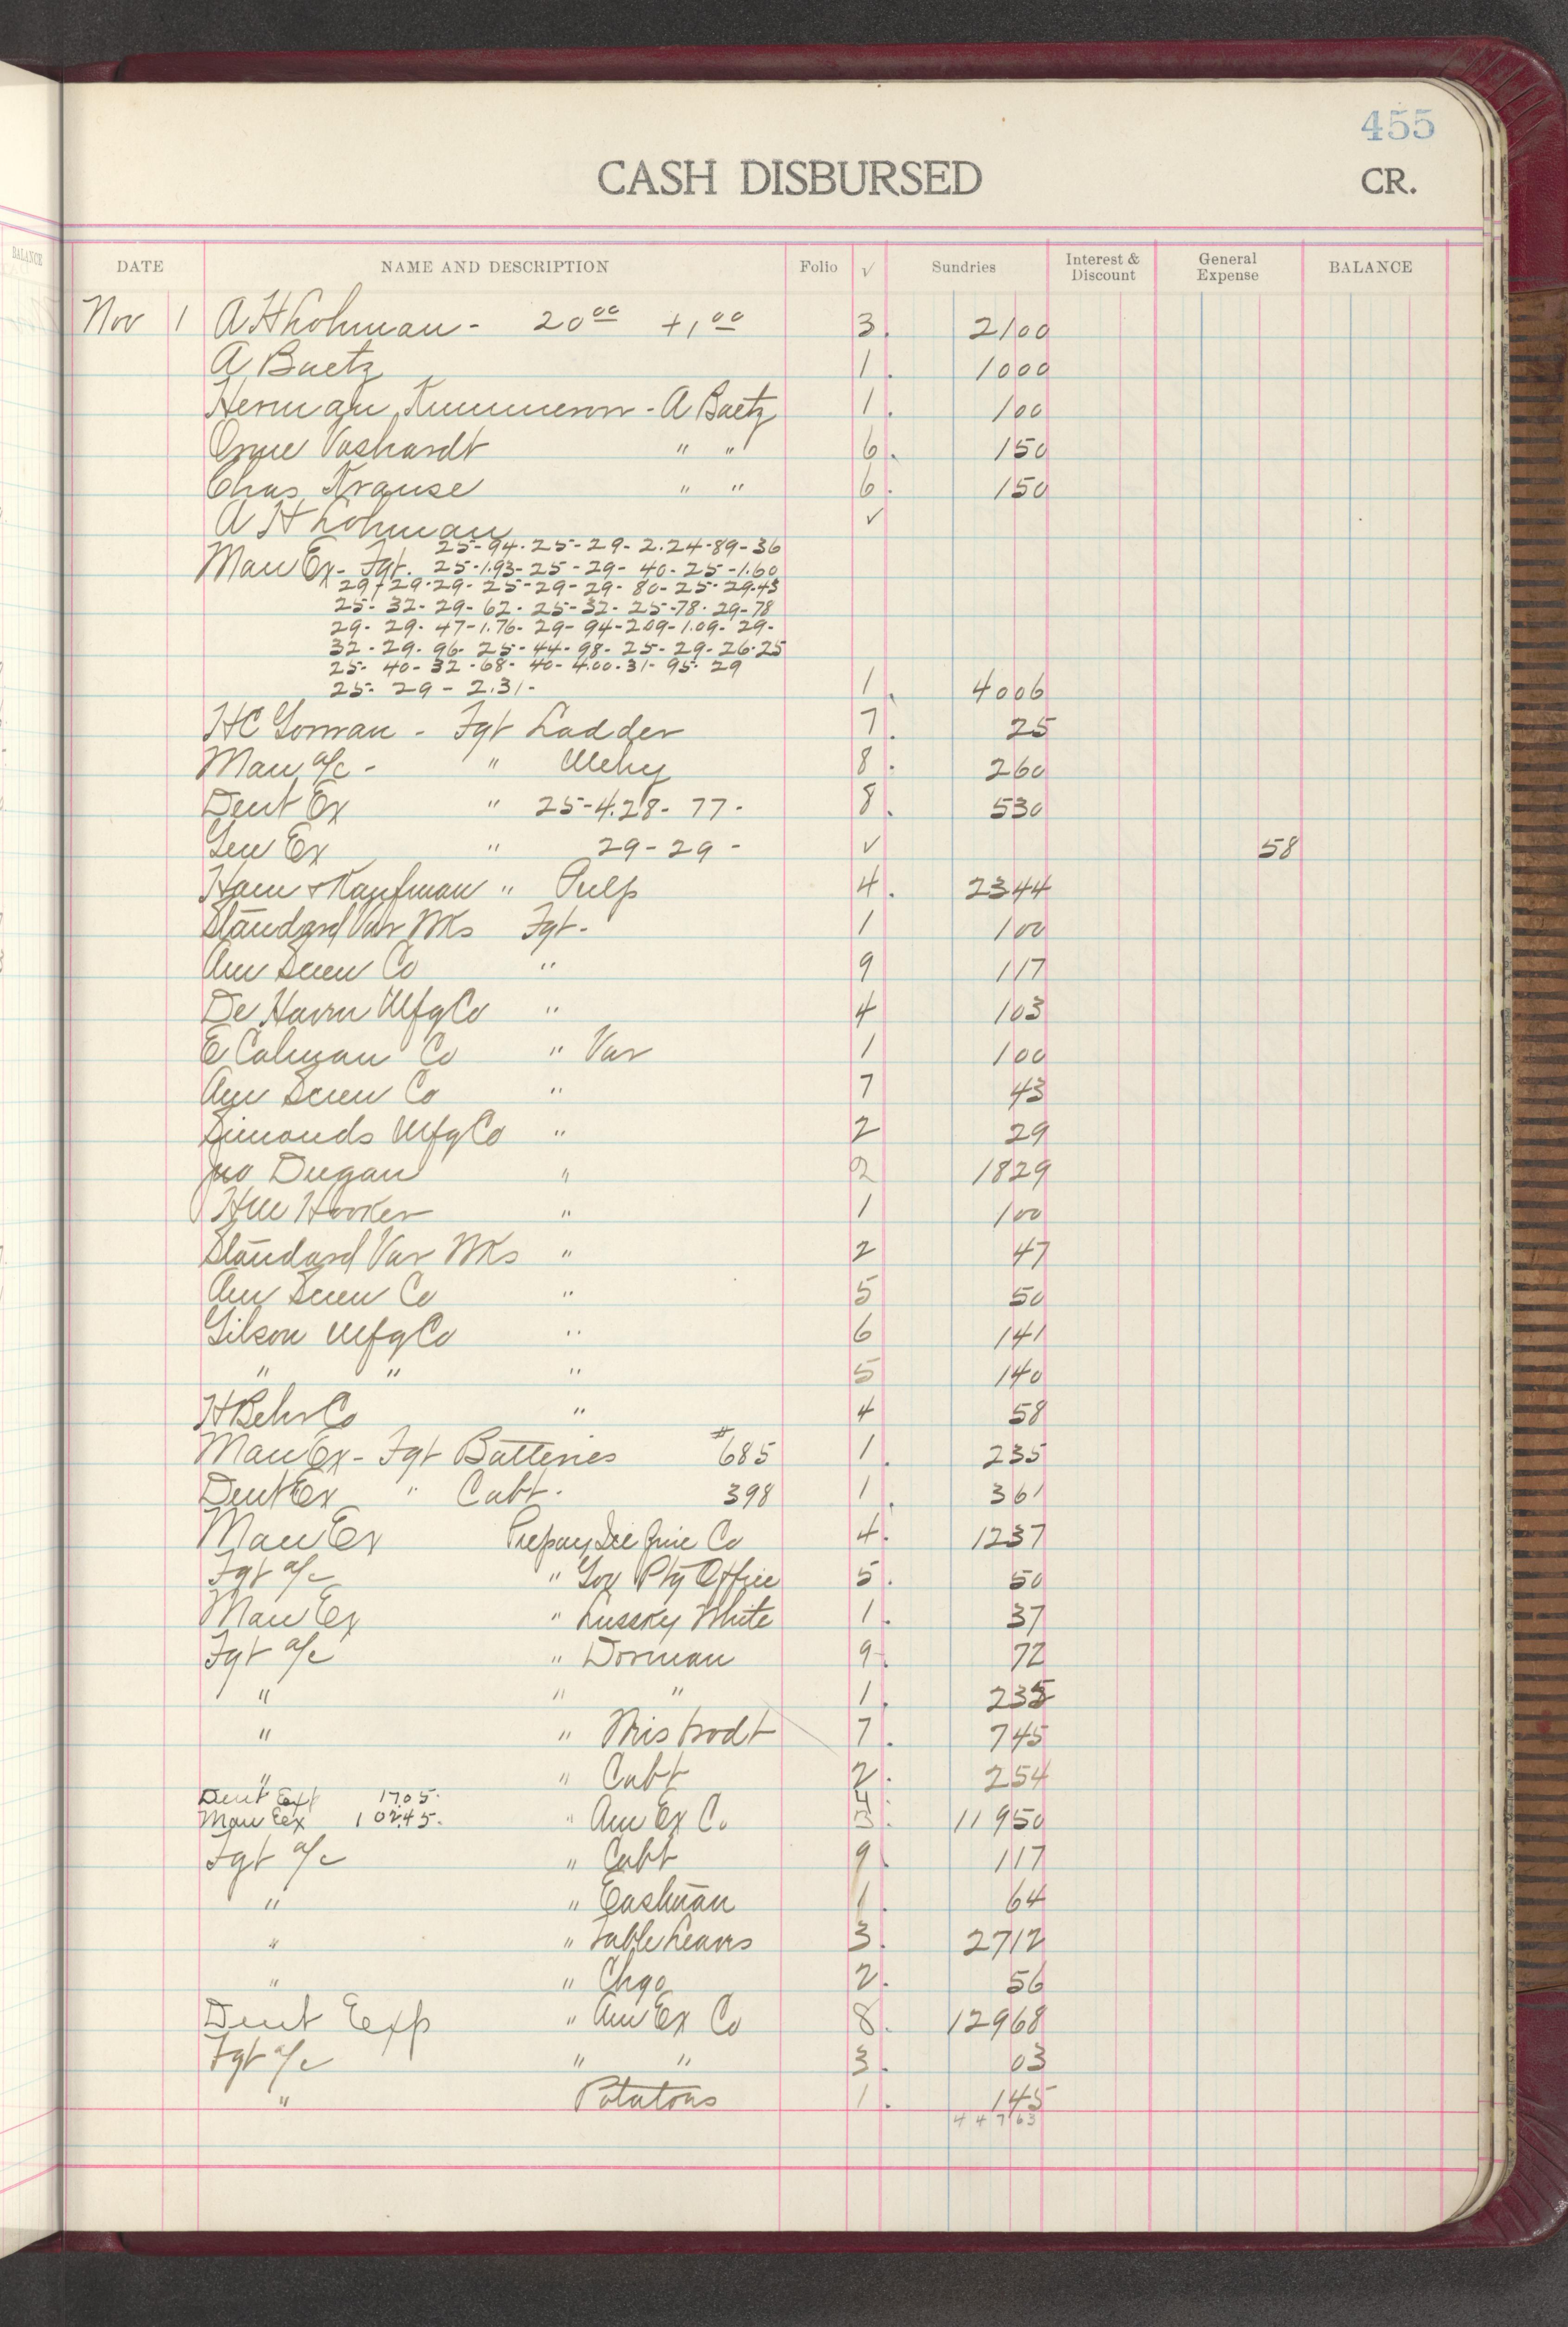 455
CASH DISBURSED CR.
BALANCE
DATE NAME AND DESCRIPTION Folio √ Sundries Interest & Discount General Expense BALANCE
Nov 1 A H Lohman - 20 00 + 1 00 3. 2100
A Baetz 1. 1000
Herman - A Baetz 1. 100
Vashardt " " 6. 150
Chas Krause " " 6. 150
A H Lohman √
25-94-25-29-2.24-89-36
Man Ex - Fgt. 25-1.93-25-29-40-25-1.60
29-29-29-25-29-29-80-25-29-43
25-32-29-62-25-32-25-78-29-78
29-29-47-1.76-29-94-209-1.09-29-
32-29-96-25-44-98-25-29-26-25
25-40-32-68-40-4.00-31-95-29
25-29-2.31- 1. 4006
H C Gorman - Fgt Ladder 7. 25
Man a/c - " Mchy 8. 260
Dent Ex " 25-4.28-77- 8. 530
Gen Ex " 29-29- √ 58
Ham & Kaufman " Pulp 4. 2344
Standard Var Wks Fgt - 1 100
Am Screw Co " 9 117
De Haven Mfg Co " 4 103
E Calman Co " Var 1 100
Am Screw Co " 7 43
Simonds Mfg Co " 2 29
Jno Dugan " 2 1829
H M Hooker " 1 100
Standard Var Wks " 2 47
Am Screw Co " 5 50
Gilson Mfg Co " 6 141
" " " 5 140
H Behr Co " 4 58
Man Ex - Fgt Batteries #685 1. 235
Dent Ex " Cabt. 398 1. 361
Man Ex Prepay Co 4. 1237
Fgt a/c " Gov Ptg Office 5. 50
Man Ex " Lussky White 1. 37
Fgt a/c " Dorman 9. 72
" " " 1. 235
" " 7. 745
" " Cabt 2. 254
Dent Ex 17.05. 4.
Man Ex 102.45. " Am Ex Co 3. 11950
Fgt a/c " Cabt 9. 117
" " Eastman 1. 64
" " Table Leaves 3. 2712
" " Chgo 2. 56
Dent Exp " Am Ex Co 8. 12968
Fgt a/c " " 3. 03
" Potatoes 1. 145
44763